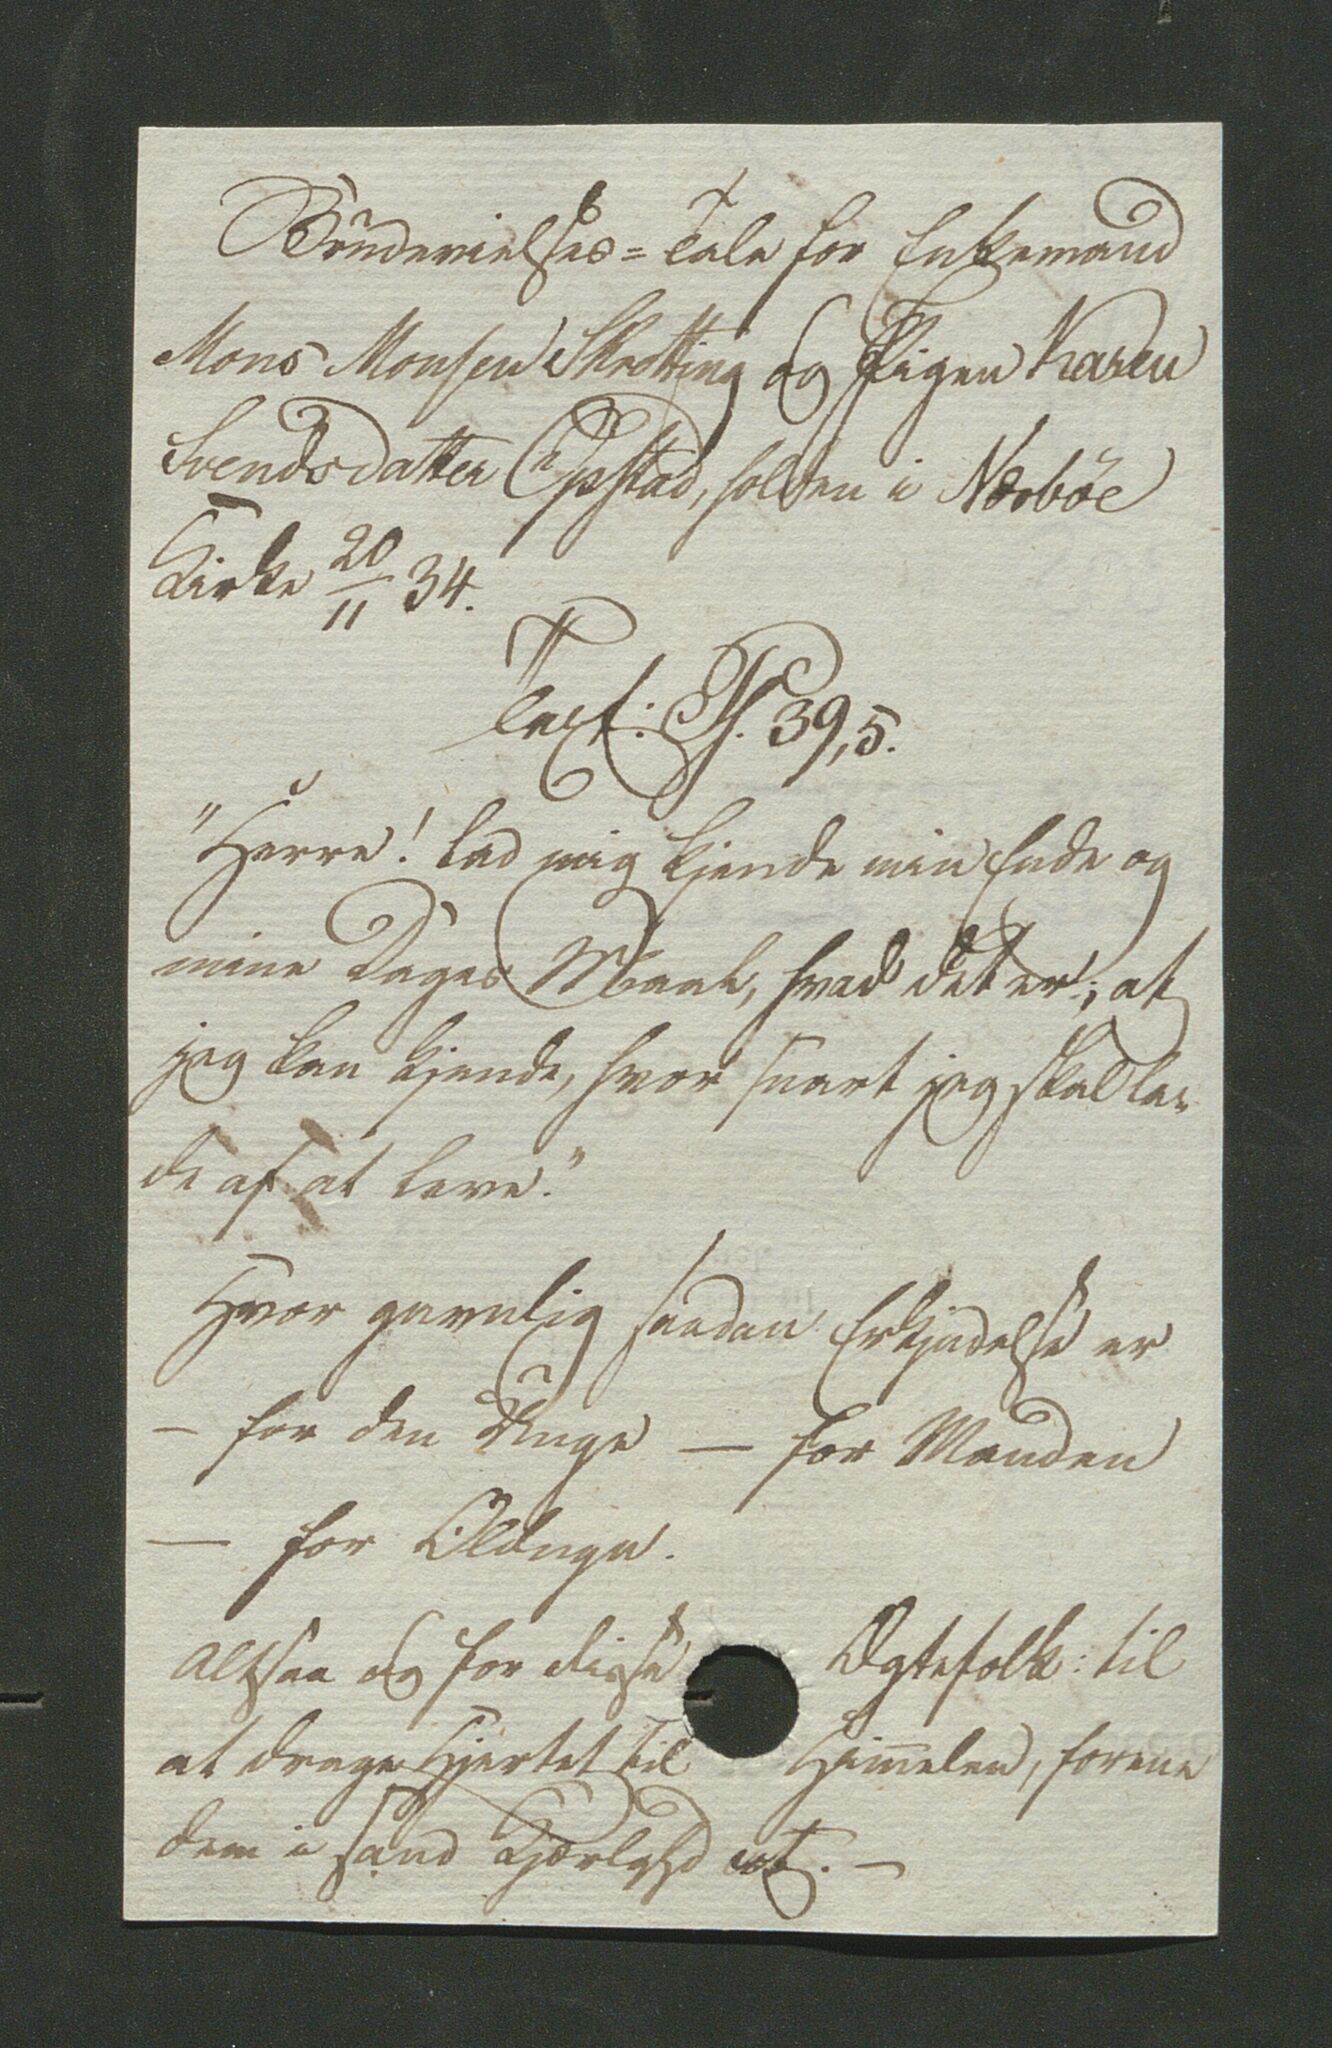 Brudevielses=Tale for Enkemand
Mons Monsen Skretting og Pigen Karen
Svendsdatter Opstad, holden i Nærbøe
Kirke 20/11 34.
Text: Ps. 39,5.
"Herre! lad mig kjende min Ende og
mine Dages Maal, hvad det er; at
jeg kan kjende, hvor snart jeg skal la=
de af at leve."
Hvor gavnlig saadan Erkjendelse er
— for den Unge — for Manden
— for Oldinge.
altsaa og for disse Ægtefolk: til
at drage Hjertet til Himmelen, forene
dem i sand Kjærlighed etc. —